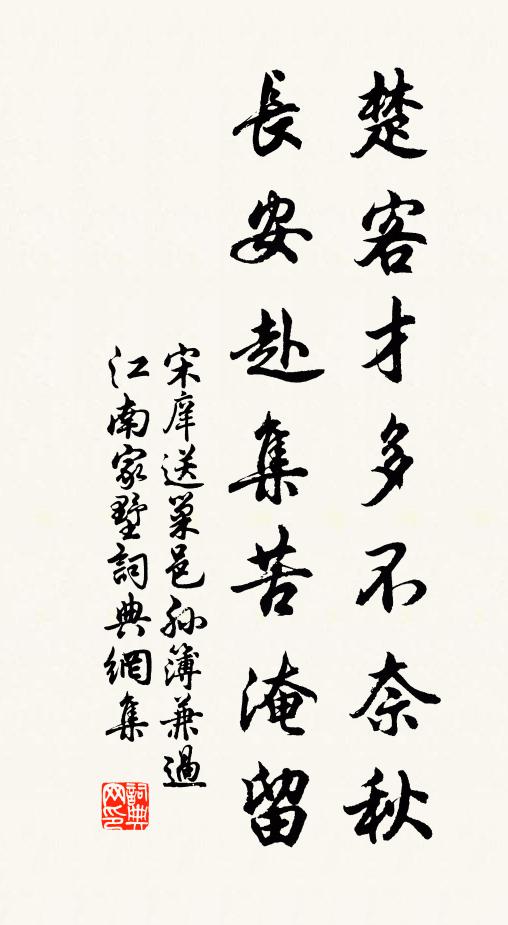 楚客才多不奈秋
長安赴集苦淹留
宋庠送巢邑孙簿兼過
江南家墅詞典網集
詞典
网印